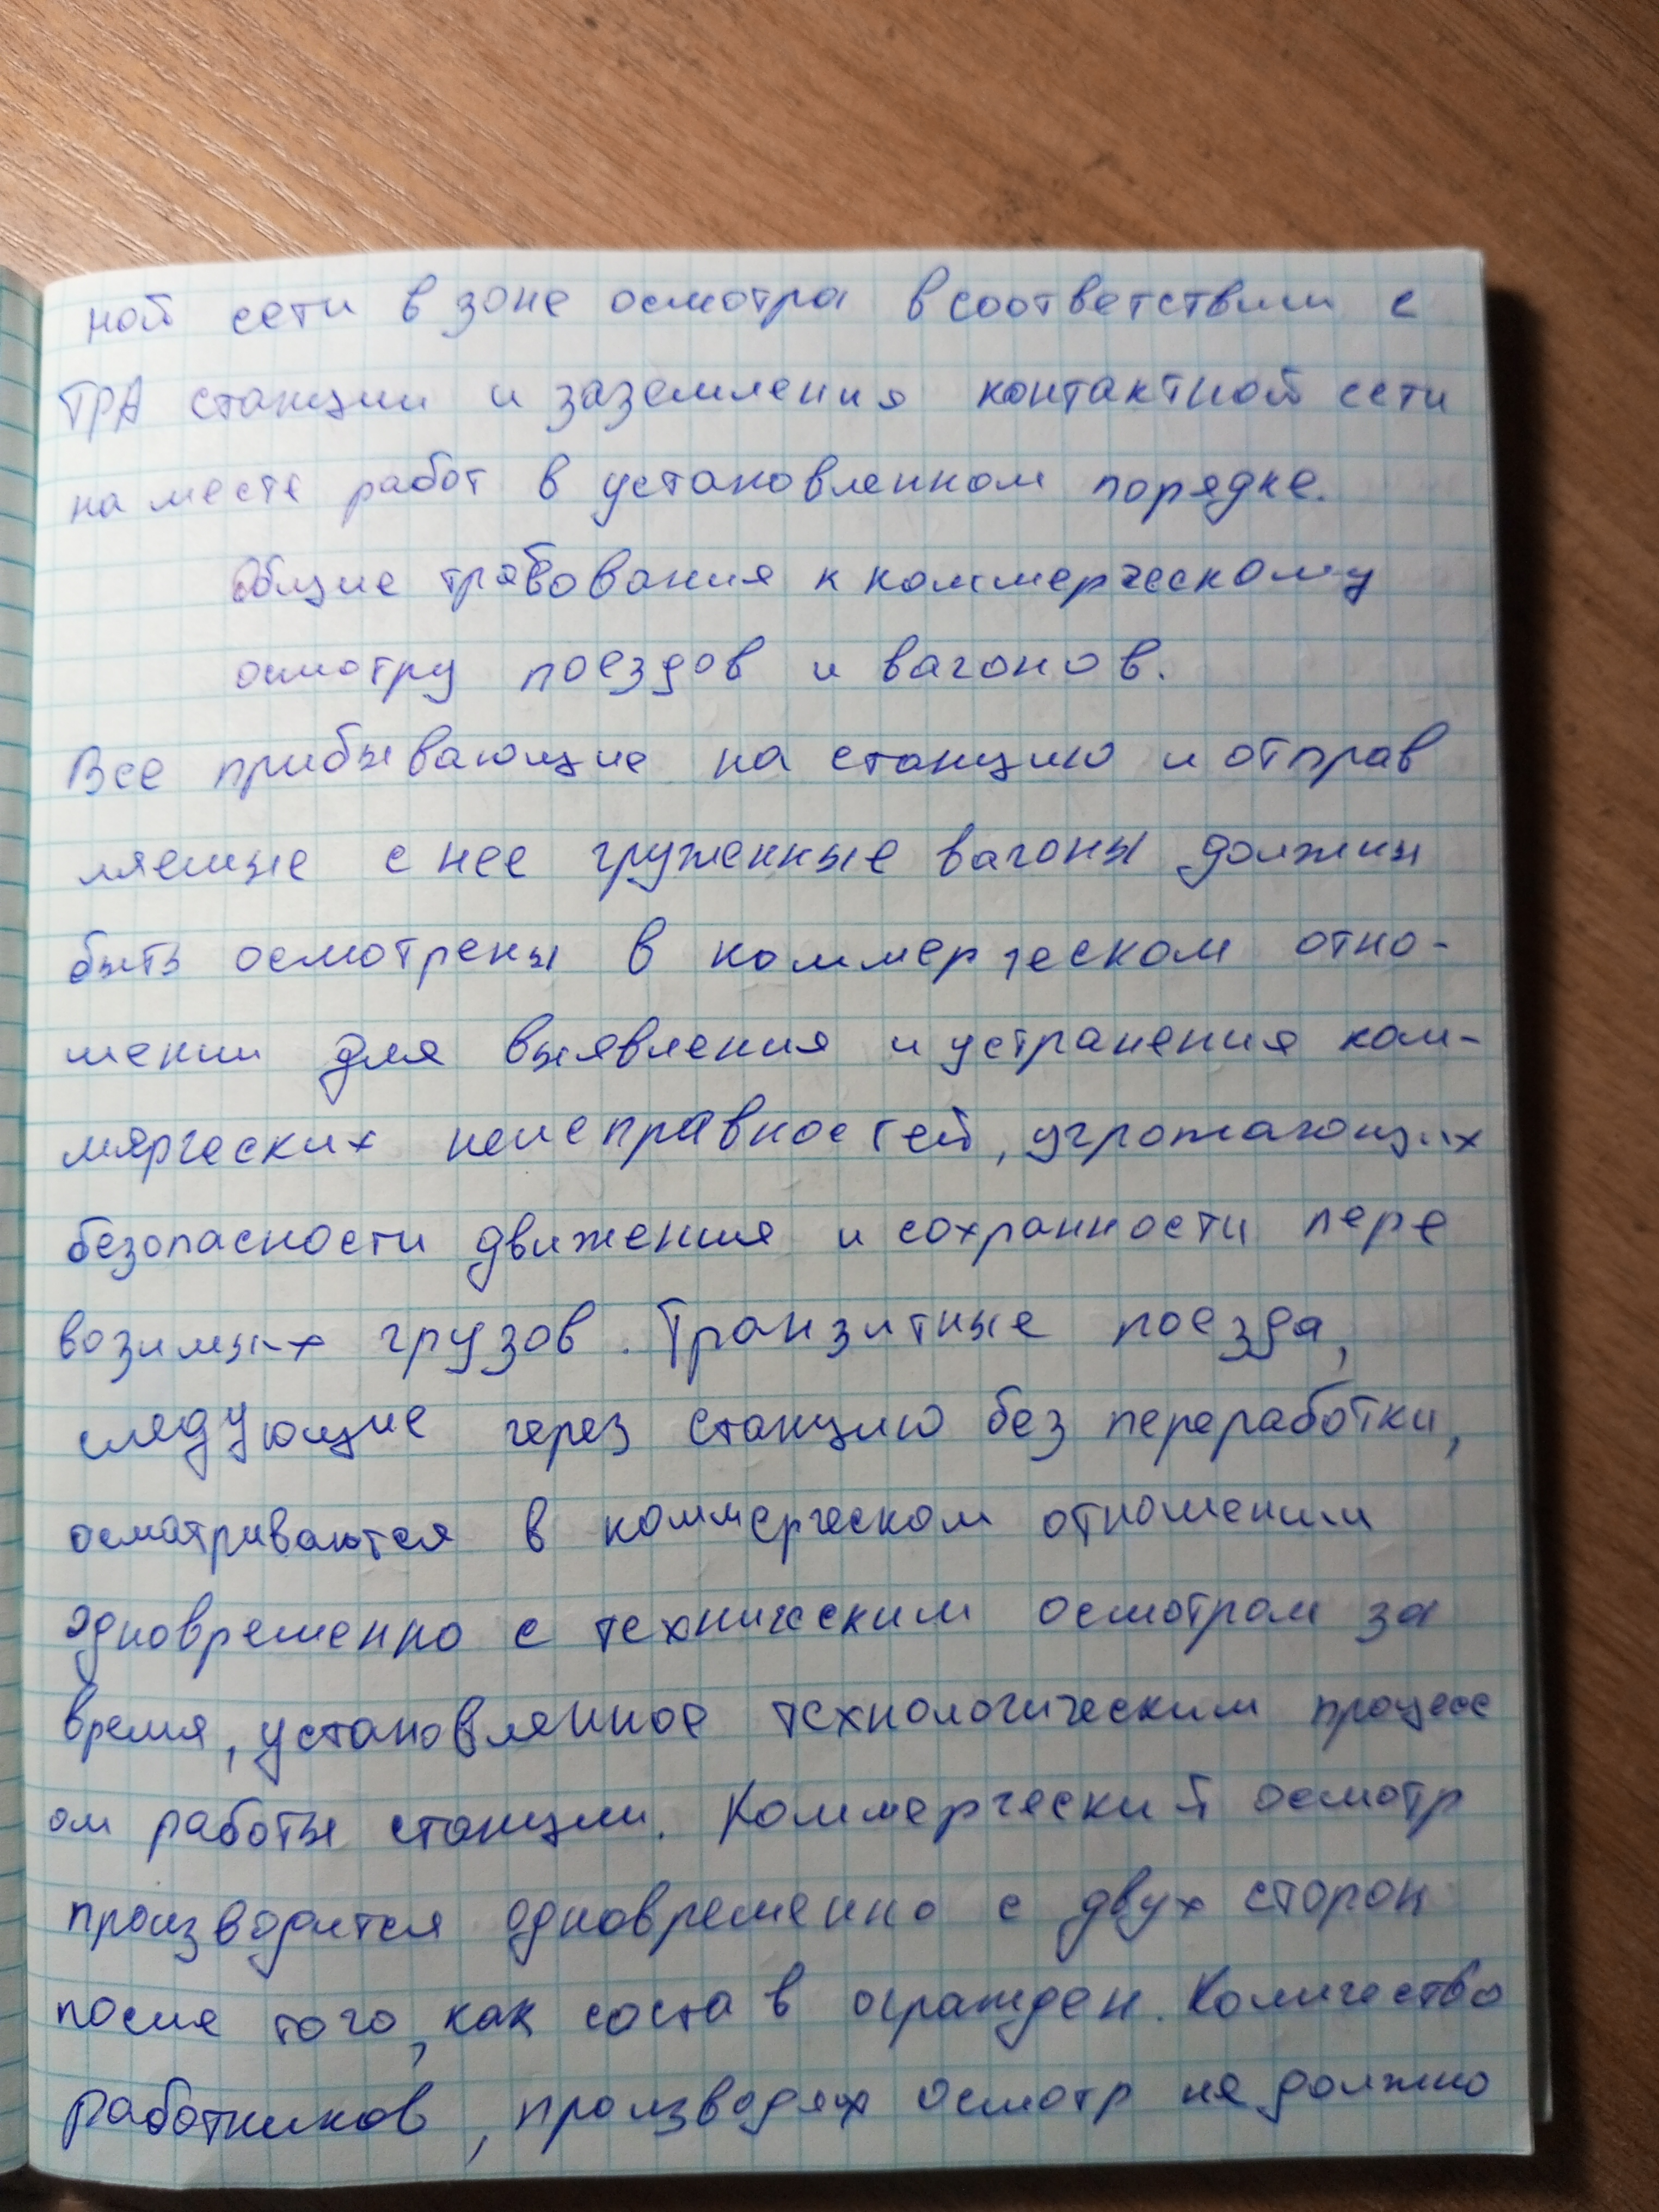 ной сети в зоне осмотра в соответствии с
ТРА станции и заземления контактной сети
на месте работ в установленном порядке.
Общие требования к коммерческому
осмотру поездов и вагонов.
Все прибывающие на станцию и отправ
ляемые с нее груженные вагоны должны
быть осмотрены в коммерческом отно-
шении для выявления и устранения ком-
мерческих неисправностей, угрожающих
безопасности движения и сохранности пере
возимых грузов. Транзитные поезда,
следующие через станцию без переработки,
осматриваются в коммерческом отношении
одновременно с техническим осмотром за
время, установленное технологическим процесс
ом работы станции. Коммерческий осмотр
производится одновременно с двух сторон
после того, как состав огражден. Количество
работников, производях осмотр не должно